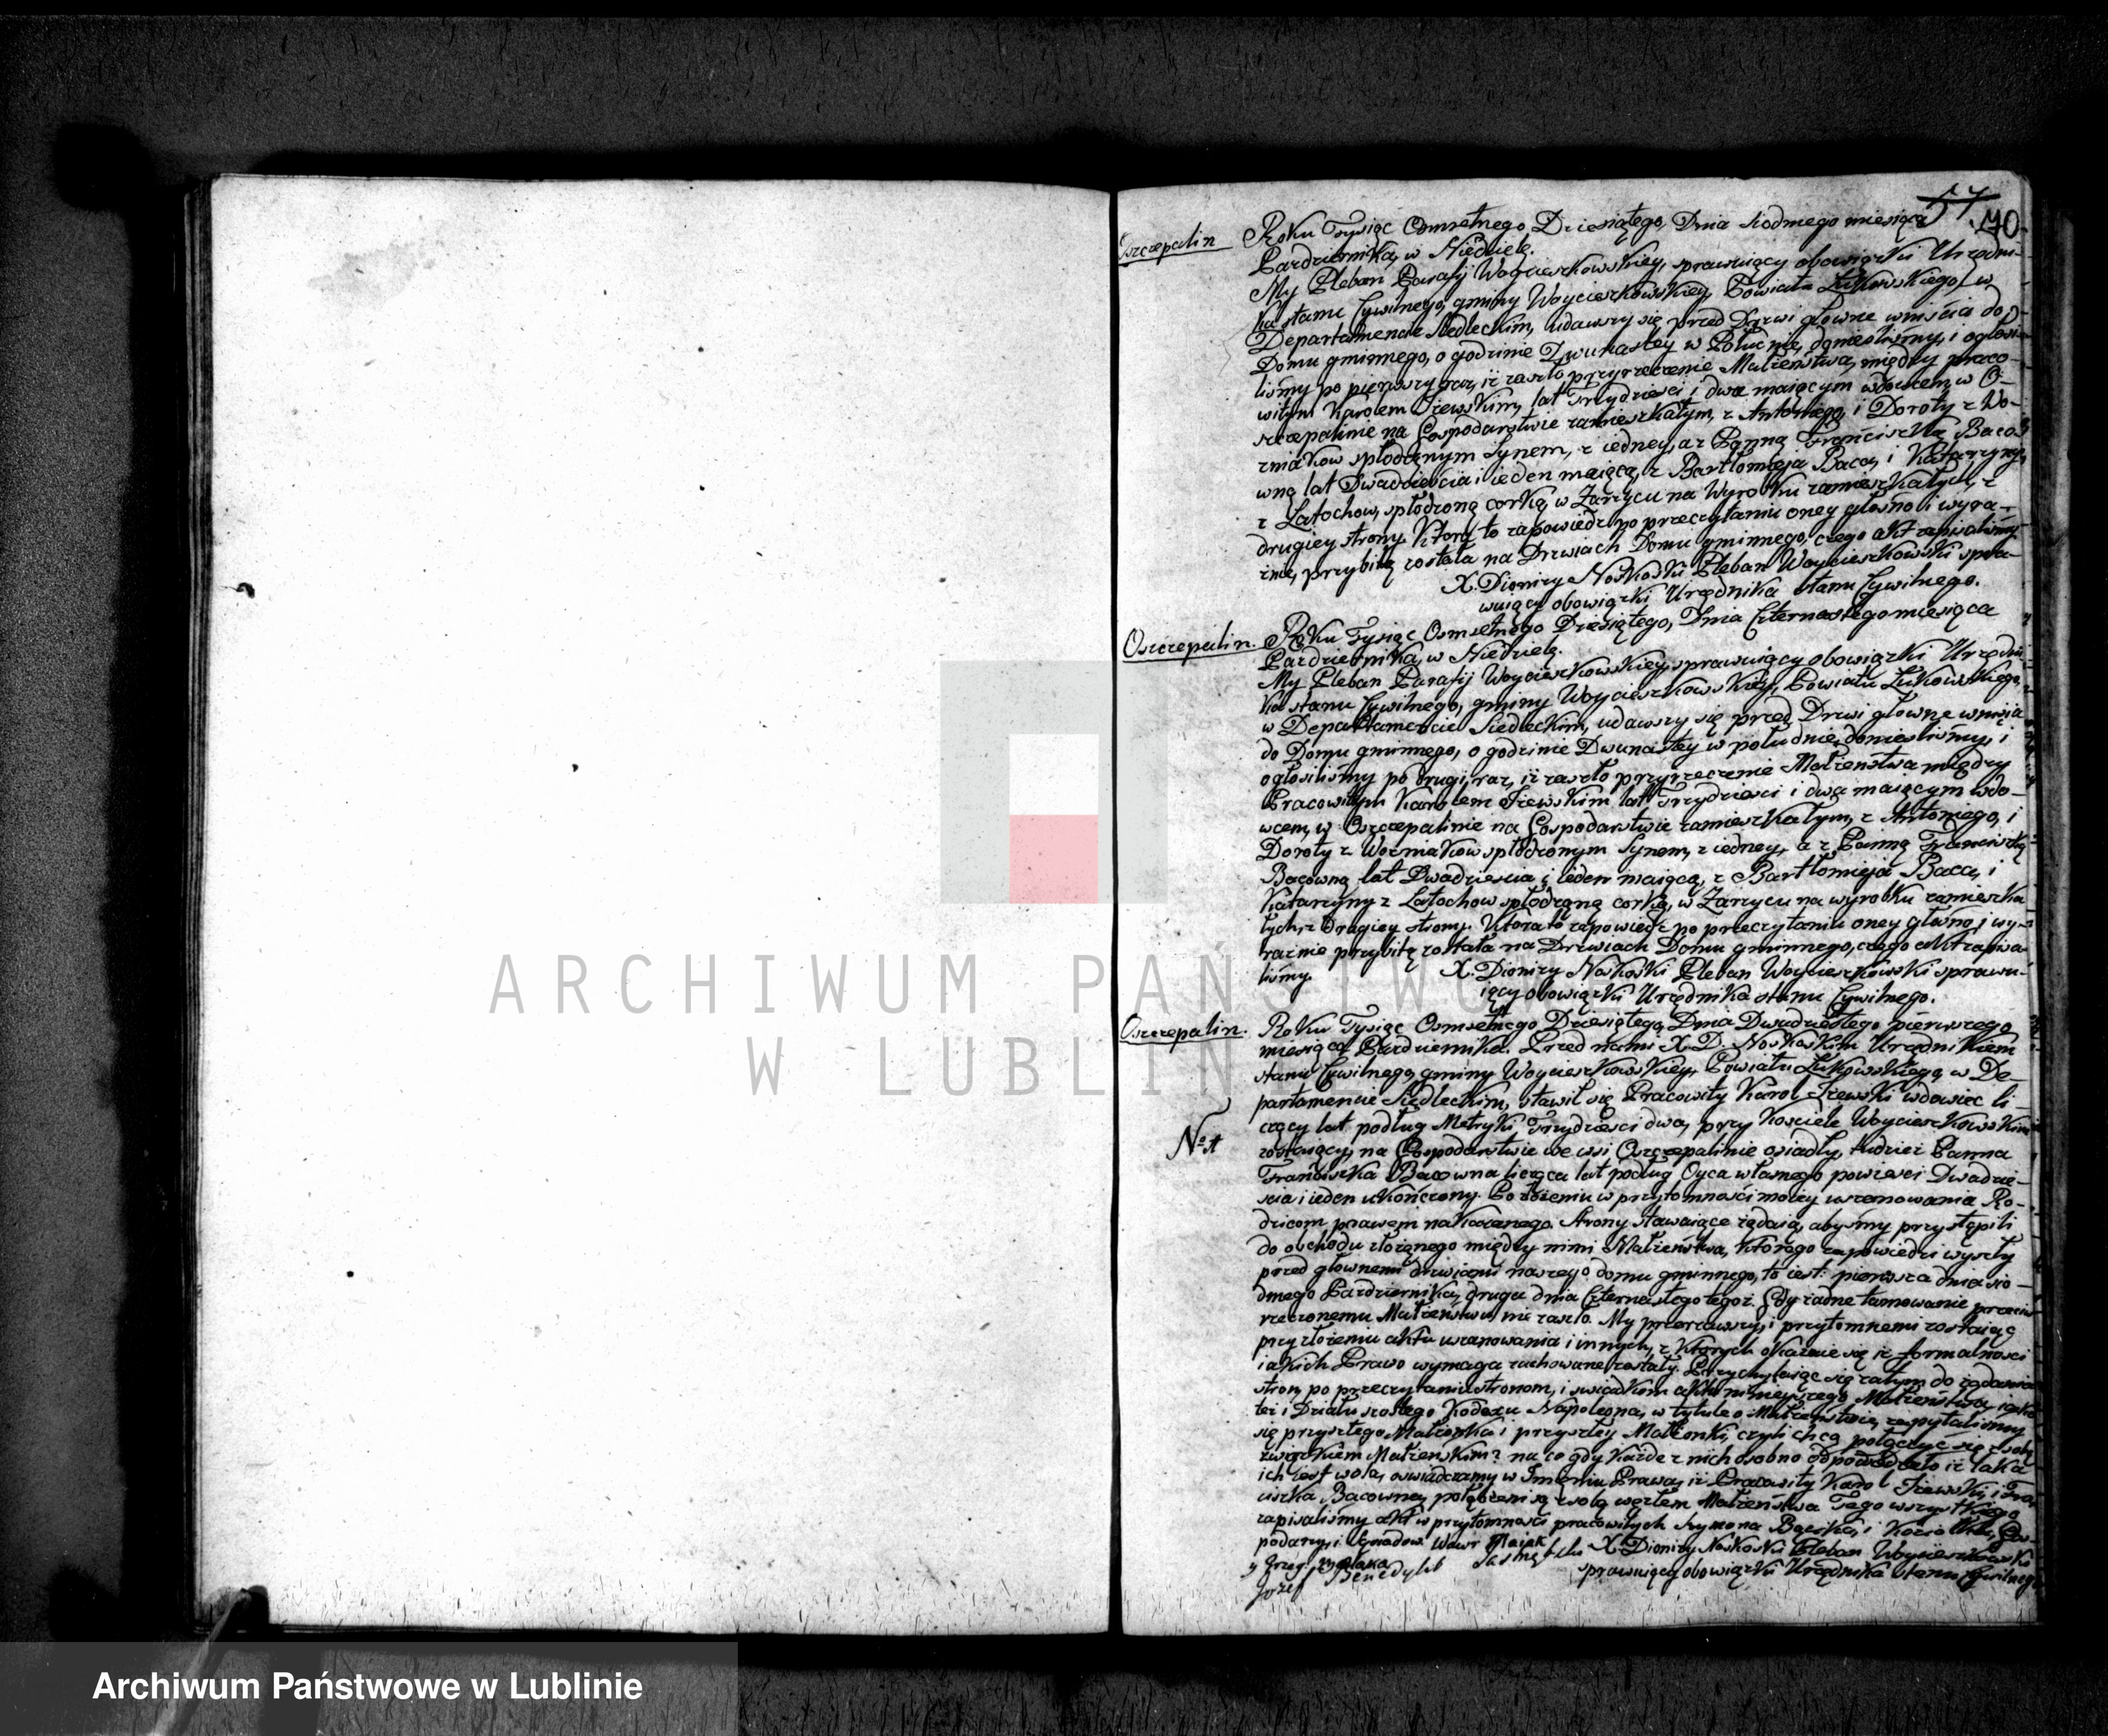 57
170.
Oszczepalin
Roku Tysiąc Osmsetnego Dziesiątego, Dnia siodmego miesiąca
Pazdziernika, w Niedzielę.
My Pleban Parafij Woycieszkowskiey, sprawuiący obowiązki Urzędni-
ka stanu Cywilnego, gminy Woycieszkowskiey, Powiatu Łukowskiego, w
Departamencie Siedleckim, udawszy się przed Drzwi głowne wniścia do
Domu gminnego, o godzinie Dwunastey w Południe, donieslismy, i ogłosi-
liśmy po pierwszy raz, iż zaszło przyrzeczenie Małżeństwa, między praco-
witym Karolem Jzewskim, lat Trzydzieści i dwa maiącym wdowcem, w O-
szczepalinie na Gospodarstwie zamieszkałym, z Antoniego, i Doroty z Wo-
zniakow spłodzonym Synem, z iedney, a z Panną Franciszką Baco-
wną lat Dwadzieścia i ieden maiącą, z Bartłomieja Baca, i Katarzyny
z Latochow, spłodzoną corką, w Zarzycu na Wyrobku zamieszkałych, z
drugiey strony. Ktora to zapowiedz po przeczytaniu oney głosno i wyra-
znie, przybitą została na Drzwiach Domu gminnego, czego akt zapisaliśmy.
X. Dionizy Noskoski Pleban Woycieszkowski spra-
wuiący obowiązki Urzędnika stanu Cywilnego.
Oszczepalin.
Roku Tysiąc Osmsetnego Dziesiątego, Dnia Czternastego miesiąca
Pazdziernika, w Niedzielę.
My Pleban Parafij Woycieszkowskiey, sprawuiący obowiązki Urzędni-
ka stanu Cywilnego, gminy Woycieszkowskiey, Powiatu Łukowskiego,
w Departamencie Siedleckim, udawszy się przed Drzwi głowne wniścia
do Domu gminnego, o godzinie Dwunastey w południe, donieslismy, i
ogłosiliśmy po drugi raz, iż zaszło przyrzeczenie Małżenstwa między
Pracowitym Karolem Jzewskim lat Trzydzieści i dwa maiącym wdo-
wcem, w Oszczepalinie na Gospodarstwie zamieszkałym, z Antoniego, i
Doroty z Wozniakow spłodzonym Synem, z iedney, a z Panną Franciszką
Bacowną lat Dwadzieścia i ieden maiącą, z Bartłomieja Baca, i
Katarzyny z Latochow spłodzoną corką, w Zarzycu na wyrobku zamieszka-
łych, z drugiey strony. Ktora to zapowiedz po przeczytaniu oney głosno, i wy-
raznie przybitą została na Drzwiach Domu gminnego, czego akt zapisa-
liśmy.
X. Dionizy Noskoski Pleban Woycieszkowski sprawu-
iący obowiązki Urzędnika stanu Cywilnego.
Oszczepalin.
Roku Tysiąc Osmsetnego Dziesiątego, Dnia Dwudziestego pierwszego
miesiąca Pazdziernika. Przed nami X. D. Noskoskim Urzędnikiem
stanu Cywilnego, gminy Woycieszkowskiey, Powiatu Łukowskiego, w De-
partamencie Siedleckim, stawił się Pracowity Karol Jzewski wdowiec li-
czący lat podług Metryki Trzydzieści dwa, przy Kosciele Woycieszkowskim
N° 4
zostaiącey, na Gospodarstwie we wsi Oszczepalinie osiadły, tudzież Panna
Franciszka Bacowna licząca lat podług Oyca własnego powieści Dwadzie-
ścia i ieden ukończony. Po złożeniu w przytomności moiey uszanowania Ro-
dzicom prawem nakazanego. Strony stawaiące żądaią, abyśmy przystąpili
do obchodu złożonego między nimi Małżeństwa, ktorego zapowiedzi wyszły
przed głownemi drzwiami naszego domu gminnego, to iest: pierwsza dnia sio-
dmego Pazdziernika, druga dnia Czternastego tegoż. Gdy żadne tamowanie przeciw
rzeczonemu Małżeństwu nie zaszło. My przeczytawszy, i przytomnemi zostaiąc
przy złożeniu aktu uszanowania i innych, z ktorych okazuie się iż formalności
iakich Prawo wymaga zachowane zostały. Przychylaiąc się zatym do żądania
stron, po przeczytaniu stronom, i swiadkom aktu ninieyszego Małżeństwa, iako
też i Działu szostego Kodexu Napoleona, w tytule o Małżeństwie, zapytaliśmy
się przyszłego Małżonka i przyszłey Małżonki, czyli chcą połączyć się z sobą
związkiem Małżeńskim? na co gdy każde z nich osobno odpowiedziało iż taka
ich iest wola, oswiadczamy w Imieniu Prawa, iż Pracowity Karol Jzewski, i Fran-
ciszka Bacowna, połączeni są z sobą węzłem Małżeństwa. Tego wszystkiego
zapisaliśmy akt w przytomności pracowitych Szymona
podarzy, i Wawr Maiak
X. Dionizy Noskoski Pleban Woycieszkowski
Jozef Benedykt
sprawuiący obowiązki Urzędnika stanu Cywilnego
ARCHIWUM PAŃSTWO
W LUBLIN
Archiwum Państwowe w Lublinie